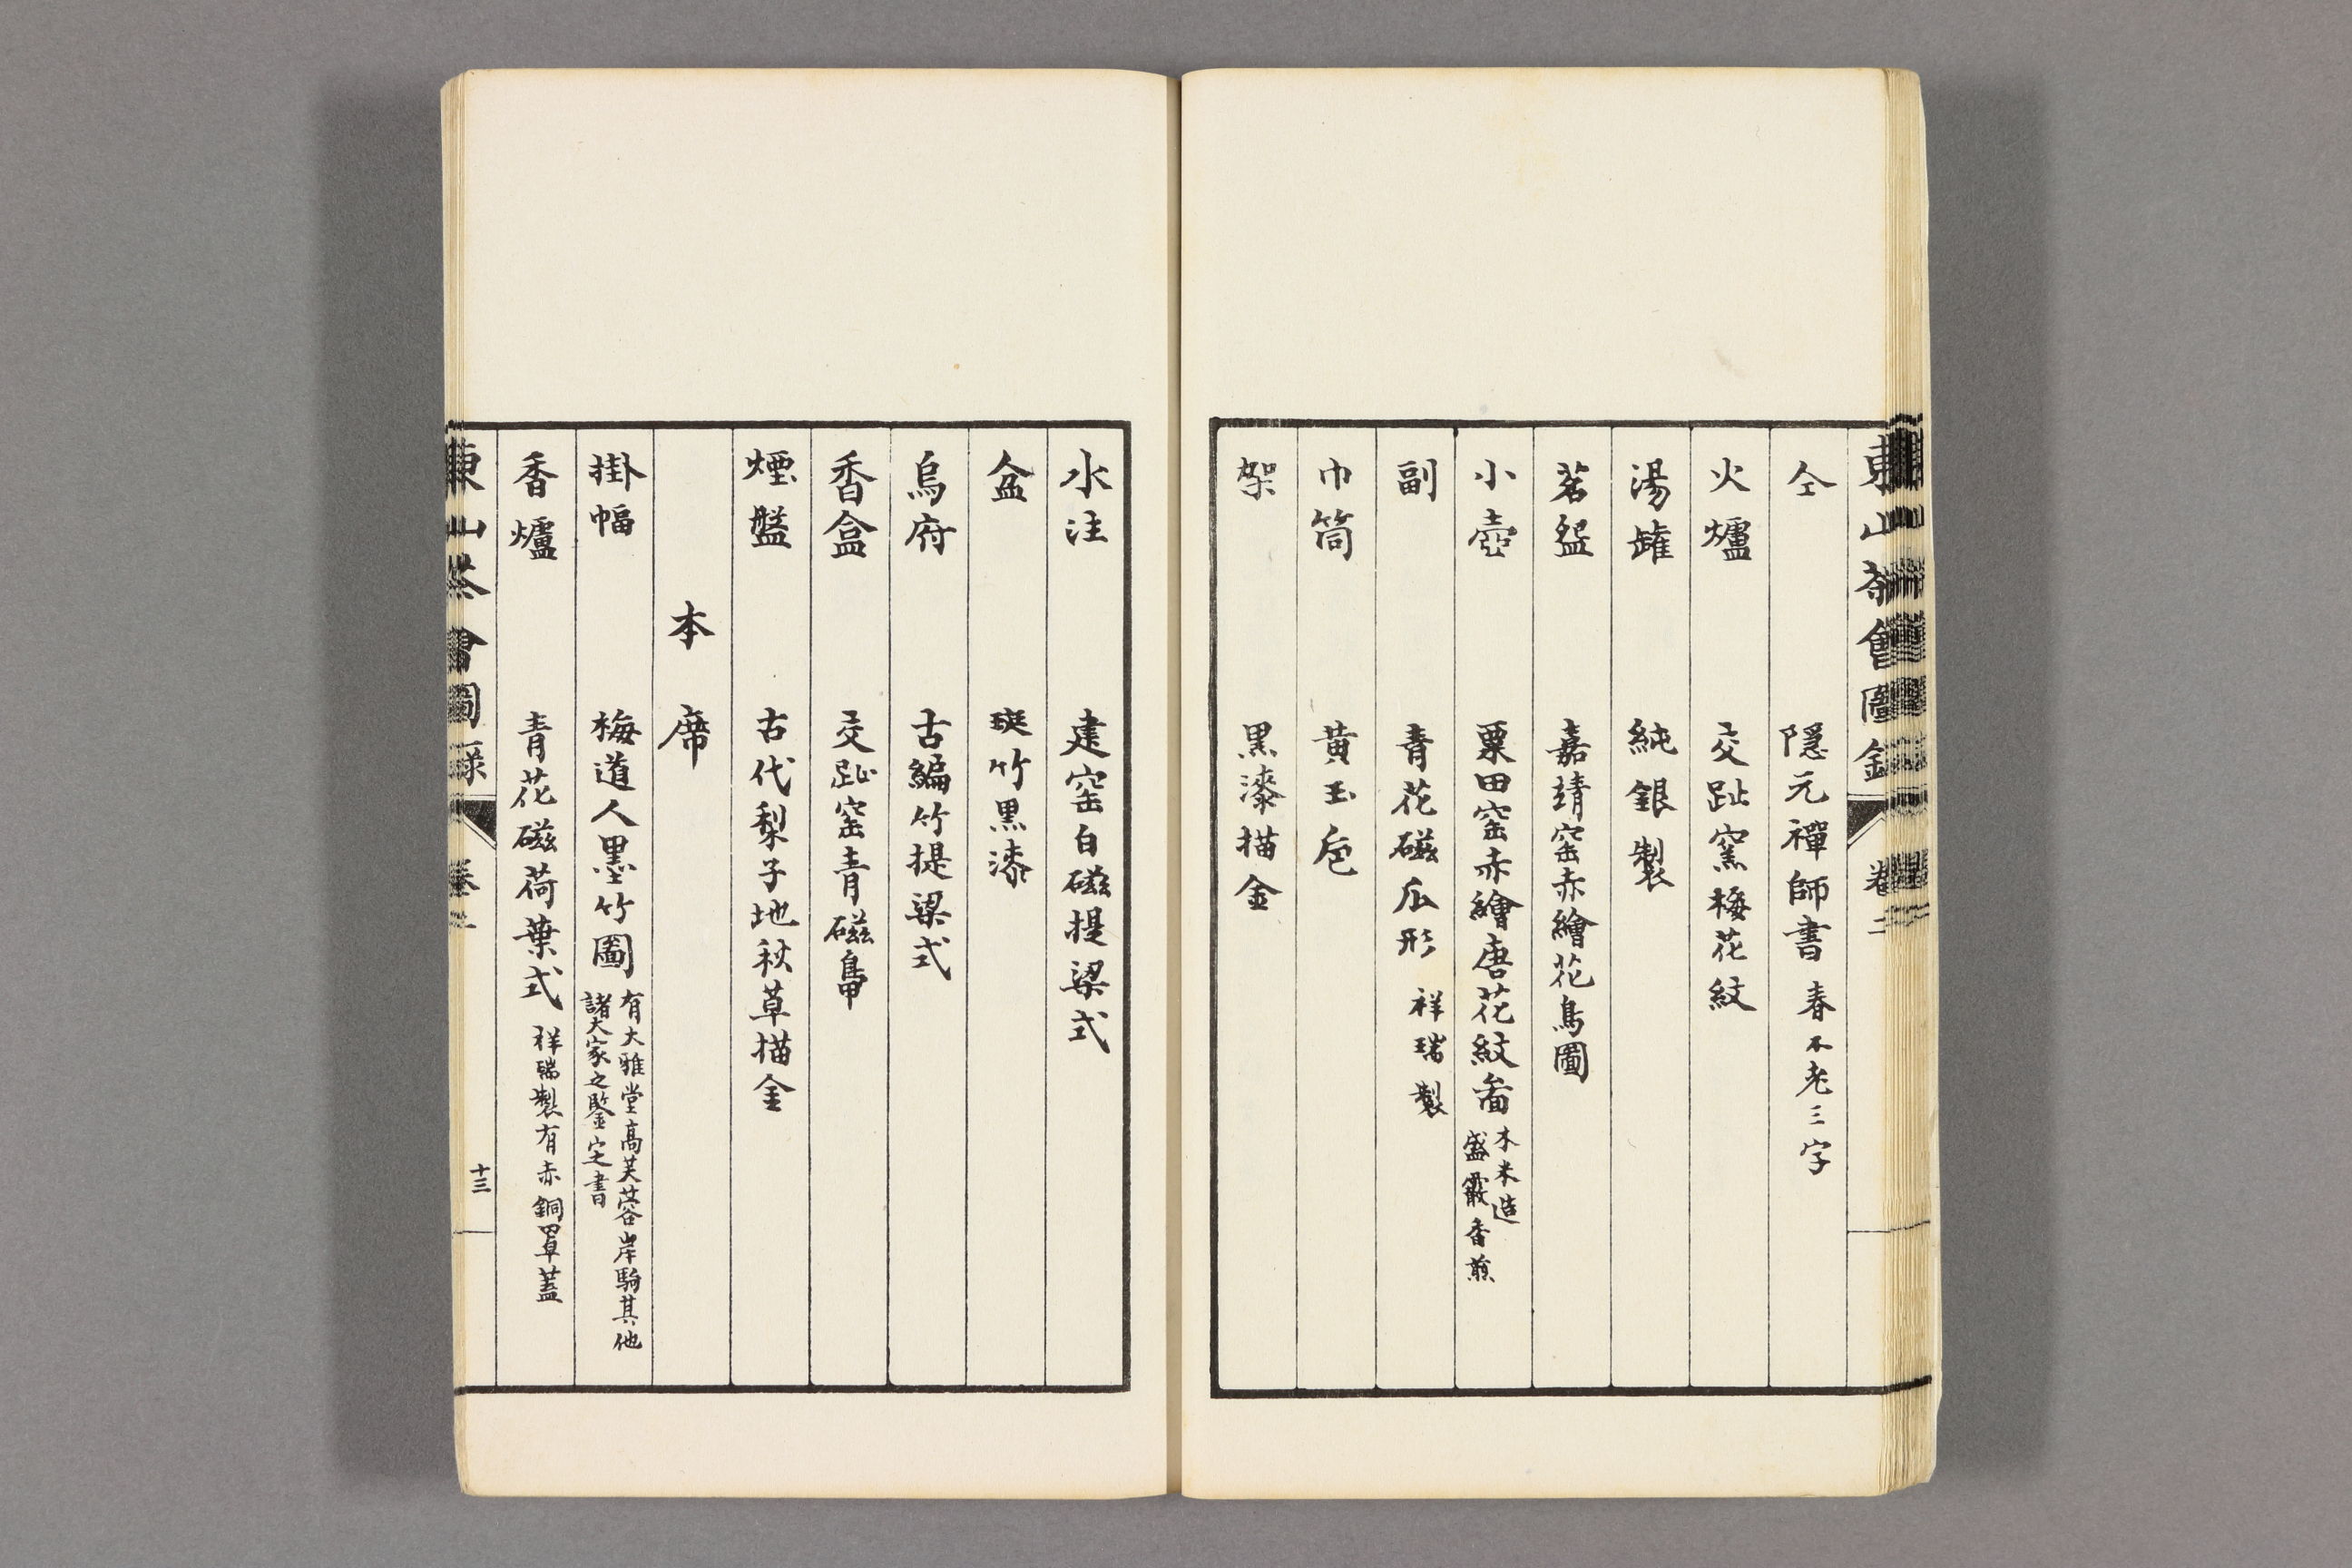 東山茶會圖錄 卷二
仝 隠元禪師書 春不老三字
火爐 交趾窯梅花紋
湯罐 純銀製
茗盌 嘉靖窑赤繪花鳥圖
小壺 粟田窑赤繪唐花紋畨 木米造
盛霰香煎
副 青花磁瓜形 祥瑞製
巾筒 黃玉巵
架 黒漆描金
水注 建窑白磁提梁式
盆 斑竹黒漆
烏府 古編竹提梁式
香盒 交趾窑青磁
煙盤 古代梨子地秋草描金
本席
掛幅 梅道人墨竹圖 有大雅堂高芙蓉岸駒其他
諸大家之鑒定書
香爐 青花磁荷葉式 祥瑞製有赤銅罩蓋
東山茶會圖錄 卷二 十三